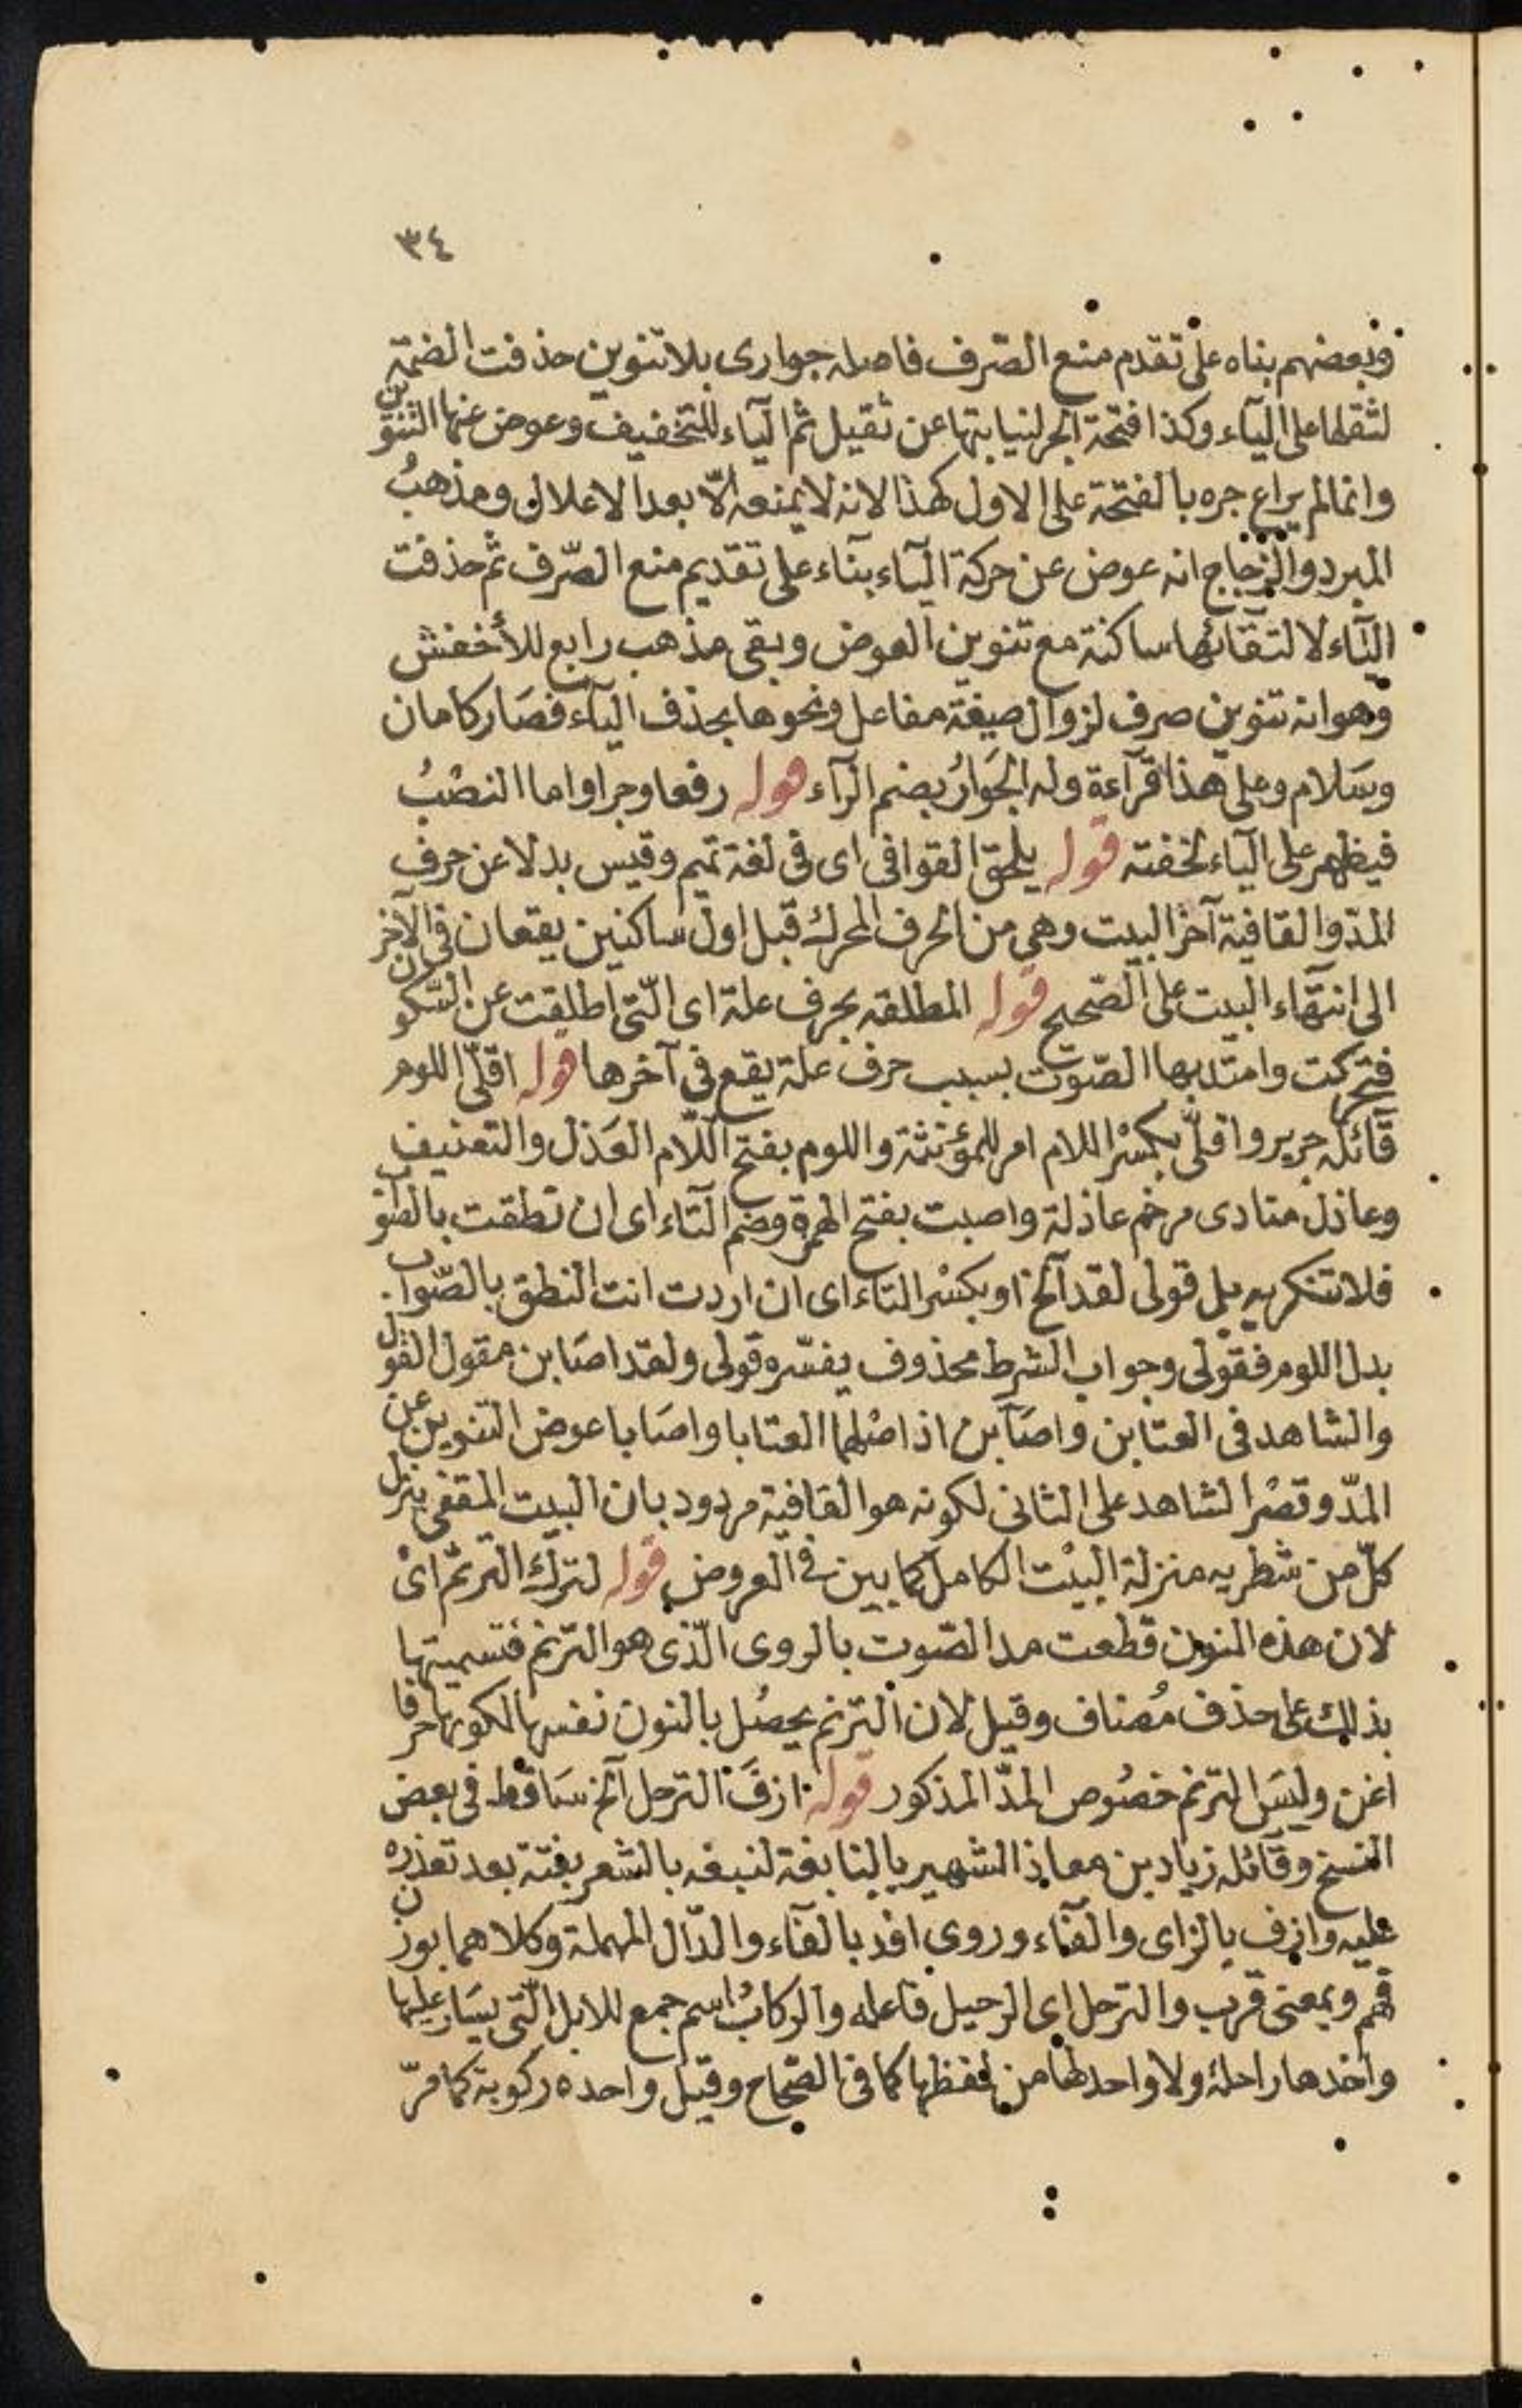 ٣٤
وبعضهم بناه على تقدم منع الصّرف فاصله جوارى بلا تنوين حذفت الضمة
لثقلها على اليآء وكذا فتحة الجر لنيابتها عن ثقيل ثم اليآء للتخفيف وعوض عنها التنوين
وانما لم يراع جره بالفتحة على الاول كهذا لانه لا يمنعه الّا بعد الاعلال ومذهبُ
المبرد والزجاج انه عوض عن حركة اليآء بنآء على تقديم منع الصّرف ثم حذفت
اليآء لالتقآئها ساكنة مع تنوين العوض وبقى مذهب رابع للأخفش
وهو انه تنوين صرف لزوال صيغة مفاعل ونحوها بحذف اليآء فصَار كامان
وسَلام وعلى هذا قرآءة وله الجَوارُ بضم الرآء قوله رفعا وجرا واما النصْبُ
فيظهر على اليآء لخفته قوله يلحق القوافى اى فى لغة تميم وقيس بدلا عن حرف
المدّ والقافية آخر البيت وهى من الحرف المحرك قبل اول ساكنين يقعان فى الآخر
الى انتهآء البيت على الصّحيح قوله المطلقه بحرف علة اى الّتى اطلقت عن السّكون
فتحركت وامتد بها الصّوت بسبب حرف علة يقع فى آخرها قوله اقلّى اللوم
قآئله جرير واقلّى بكسْر اللام امر للمؤنثة واللوم بفتح اللّام العَذل والتعنيف
وعاذل منادى مرخم عاذلة واصبت بفتح الهمزة وضم التآء اى ان نطقت بالصّواب
فلا تنكريه بل قولى لقد آلخ او بكسْر التاء اى ان اردت انت النطق بالصّواب
بدل اللوم فقولى وجواب الشرط محذوف يفسّره قولى ولقد اصَابن مقول القول
والشاهد فى العتابن واصَآبن اذ اصْلهما العتابا واصَابا عوض التنوين عن
المدّ وقصْر الشاهد على الثانى لكونه هو القافية مردود بان البيت المقفى ينزل
كلّ من شطريه منزلة البيْت الكامل كما بين فى العروض قوله لترك الترنم اىْ
لان هذه النون قطعت مد الصّوت بالروى الّذى هو الترنم فتسميتها
بذلك على حذف مُضاف وقيل لان الترنم يحصُل بالنون نفسها لكونها حرفا
اغن وليسَ الترنم خصُوص المدّ المذكور قوله ازفَ الترحل آلخ سَاقط فى بعض
النسخ وقآئله زياد بن معاذ الشهير بالنابغة لنبغه بالشعر بغتة بعد تعذره
عليه وازف بالزاى والفآء وروى افد بالفآء والدّال المهملة وكلاهما بوزن
فهم وبمعنى قرب والترحل اى الرحيل فاعله والركابُ اسم جمع للابل الّتى يسَار عليها
واحدها راحلة ولا واحد لها من لفظها كما فى الصّحاح وقيل واحده ركوبة كما مرّ